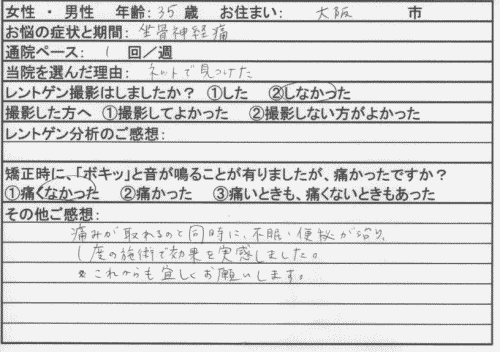 女性 ・ 男性　年齢: 35 歳　お住まい: 大阪 市
お悩の症状と期間: 坐骨神経痛
通院ペース: 1 回／週
当院を選んだ理由: ネットで見つけた
レントゲン撮影はしましたか？ ①した ②しなかった
撮影した方へ ①撮影してよかった ②撮影しない方がよかった
レントゲン分析のご感想:
矯正時に、「ボキッ」と音が鳴ることが有りましたが、痛かったですか？
①痛くなかった ②痛かった ③痛いときも、痛くないときもあった
その他ご感想:
痛みが取れるのと同時に、不眠・便秘が治り、
1度の施術で効果を実感しました。
※これからも宜しくお願いします。